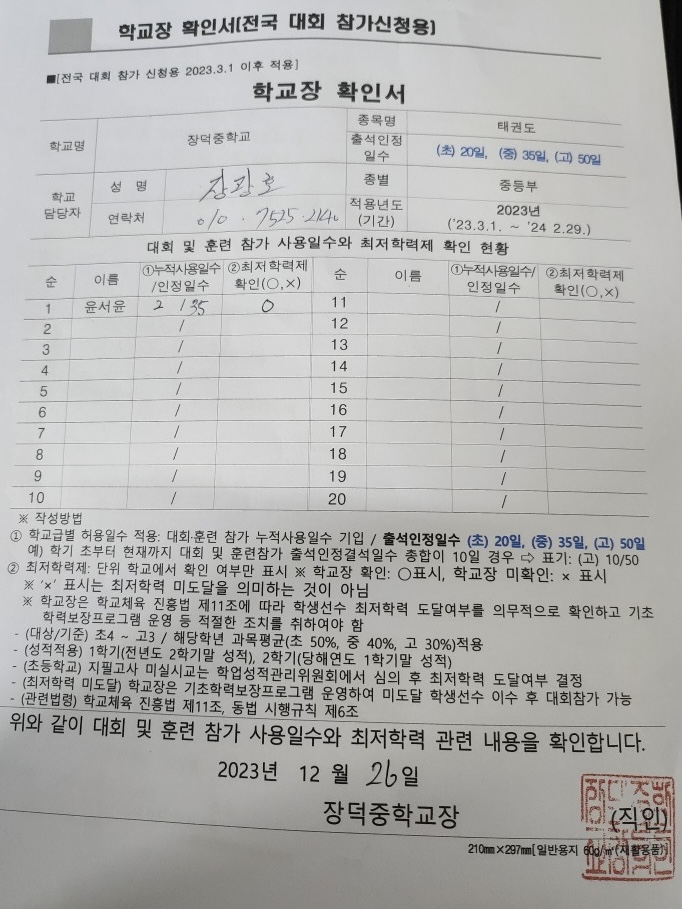 학교장 확인서(전국 대회 참가신청용)
■[전국 대회 참가 신청용 2023.3.1 이후 적용]
학교장 확인서
학교명 장덕중학교 종목명 태권도
출석인정 일수 (초) 20일, (중) 35일, (고) 50일
학교 담당자 성 명 장광호 종별 중등부
연락처 010 · 7525 · 2140 적용년도 (기간) 2023년 ('23.3.1. ~ '24 2.29.)
대회 및 훈련 참가 사용일수와 최저학력제 확인 현황
순 이름 ①누적사용일수/인정일수 ②최저학력제 확인(○,×) 순 이름 ①누적사용일수/인정일수 ②최저학력제 확인(○,×)
1 윤서윤 2 / 35 O 11 /
2 / 12 /
3 / 13 /
4 / 14 /
5 / 15 /
6 / 16 /
7 / 17 /
8 / 18 /
9 / 19 /
10 / 20 /
※ 작성방법
① 학교급별 허용일수 적용: 대회·훈련 참가 누적사용일수 기입 / 출석인정일수 (초) 20일, (중) 35일, (고) 50일
예) 학기 초부터 현재까지 대회 및 훈련참가 출석인정결석일수 총합이 10일 경우 ⇨ 표기: (고) 10/50
② 최저학력제: 단위 학교에서 확인 여부만 표시 ※ 학교장 확인: ○표시, 학교장 미확인: × 표시
※ '×' 표시는 최저학력 미도달을 의미하는 것이 아님
※ 학교장은 학교체육 진흥법 제11조에 따라 학생선수 최저학력 도달여부를 의무적으로 확인하고 기초
학력보장프로그램 운영 등 적절한 조치를 취하여야 함
- (대상/기준) 초4 ~ 고3 / 해당학년 과목평균(초 50%, 중 40%, 고 30%)적용
- (성적적용) 1학기(전년도 2학기말 성적), 2학기(당해연도 1학기말 성적)
- (초등학교) 지필고사 미실시교는 학업성적관리위원회에서 심의 후 최저학력 도달여부 결정
- (최저학력 미도달) 학교장은 기초학력보장프로그램 운영하여 미도달 학생선수 이수 후 대회참가 가능
- (관련법령) 학교체육 진흥법 제11조, 동법 시행규칙 제6조
위와 같이 대회 및 훈련 참가 사용일수와 최저학력 관련 내용을 확인합니다.
2023년 12 월 26일
장덕중학교장 (직인)
210㎜×297㎜[일반용지 60g/㎡(재활용품)]